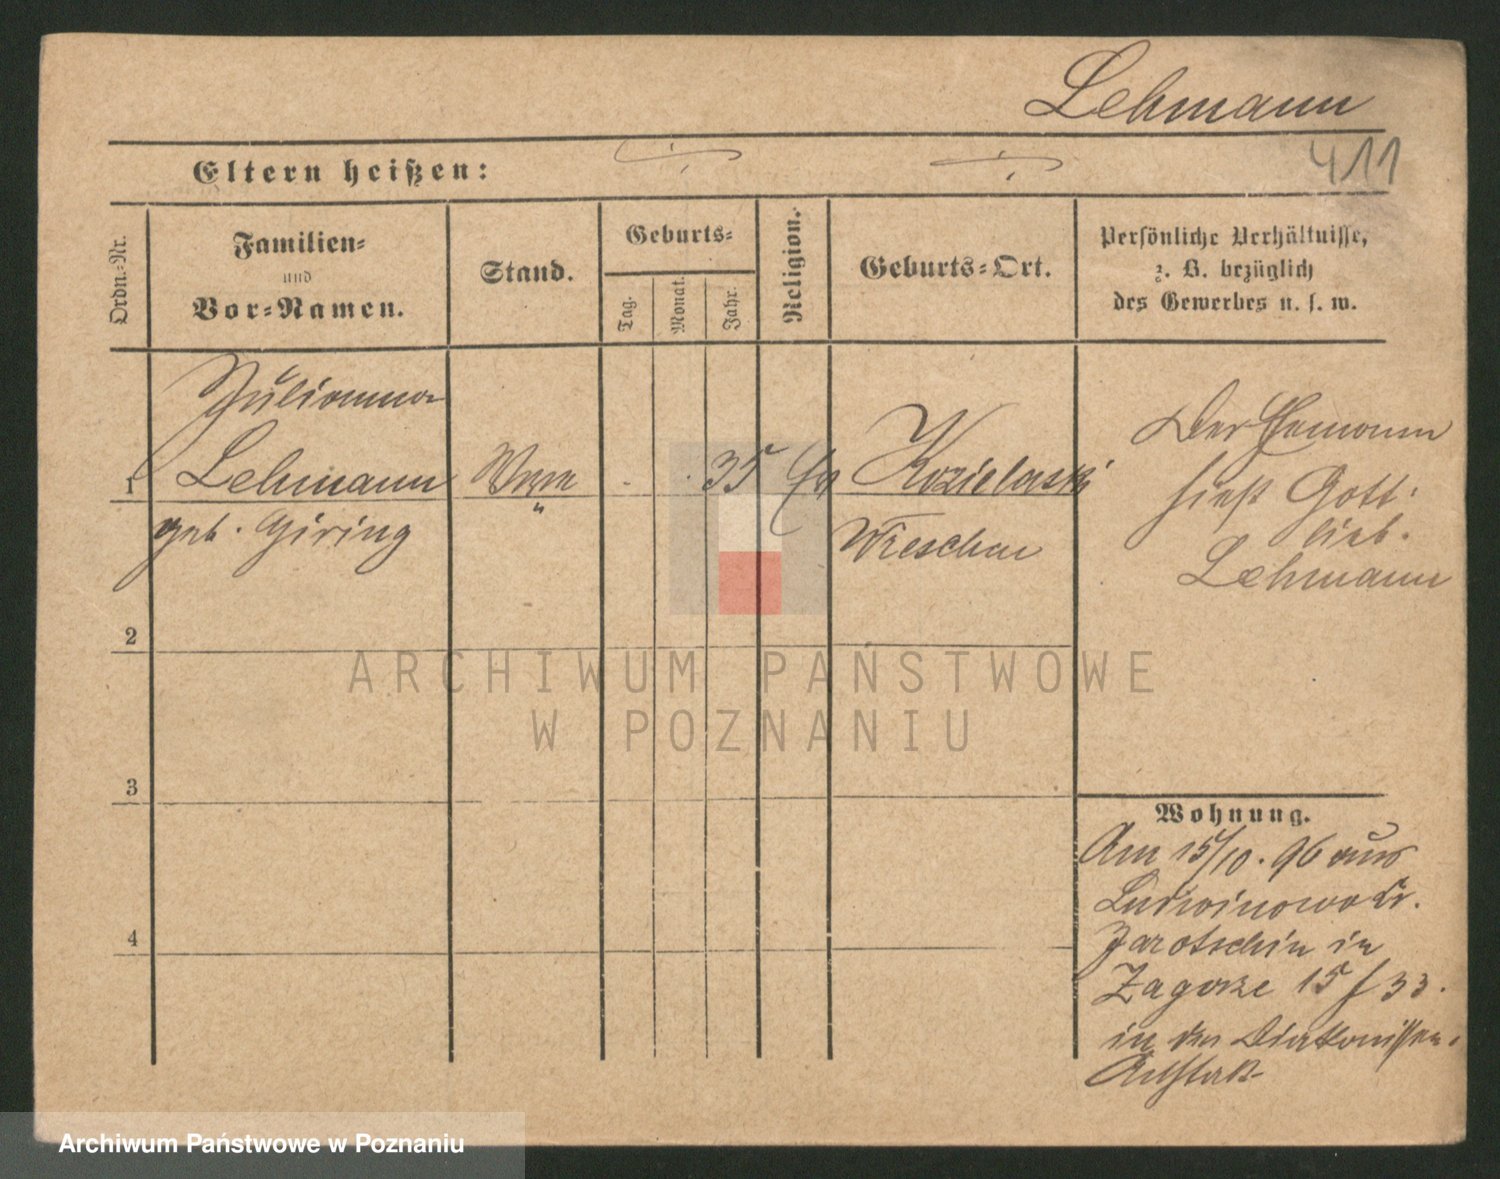 Lehmann
411
Eltern heißen: -:- -:-
Ordn.-Nr.
Familien-
und
Vor-Namen.
Stand.
Geburts-
Tag.
Monat.
Jahr.
Religion.
Geburts-Ort.
Persönliche Verhältnisse,
z. B. bezüglich
des Gewerbes u. s. w.
Julianna
1 Lehmann 35 Ev
geb. Giring
Wreschen
Der Ehemann
hieß Gott
lieb.
Lehmann
2
3
4
Wohnung.
Am 15/10. 96 aus
Ludwinowo Kr.
Jarotschin in
Zagorze 15 / 33.
in der Diakonissen-
Anstalt
ARCHIWUM PAŃSTWOWE
W POZNANIU
Archiwum Państwowe w Poznaniu